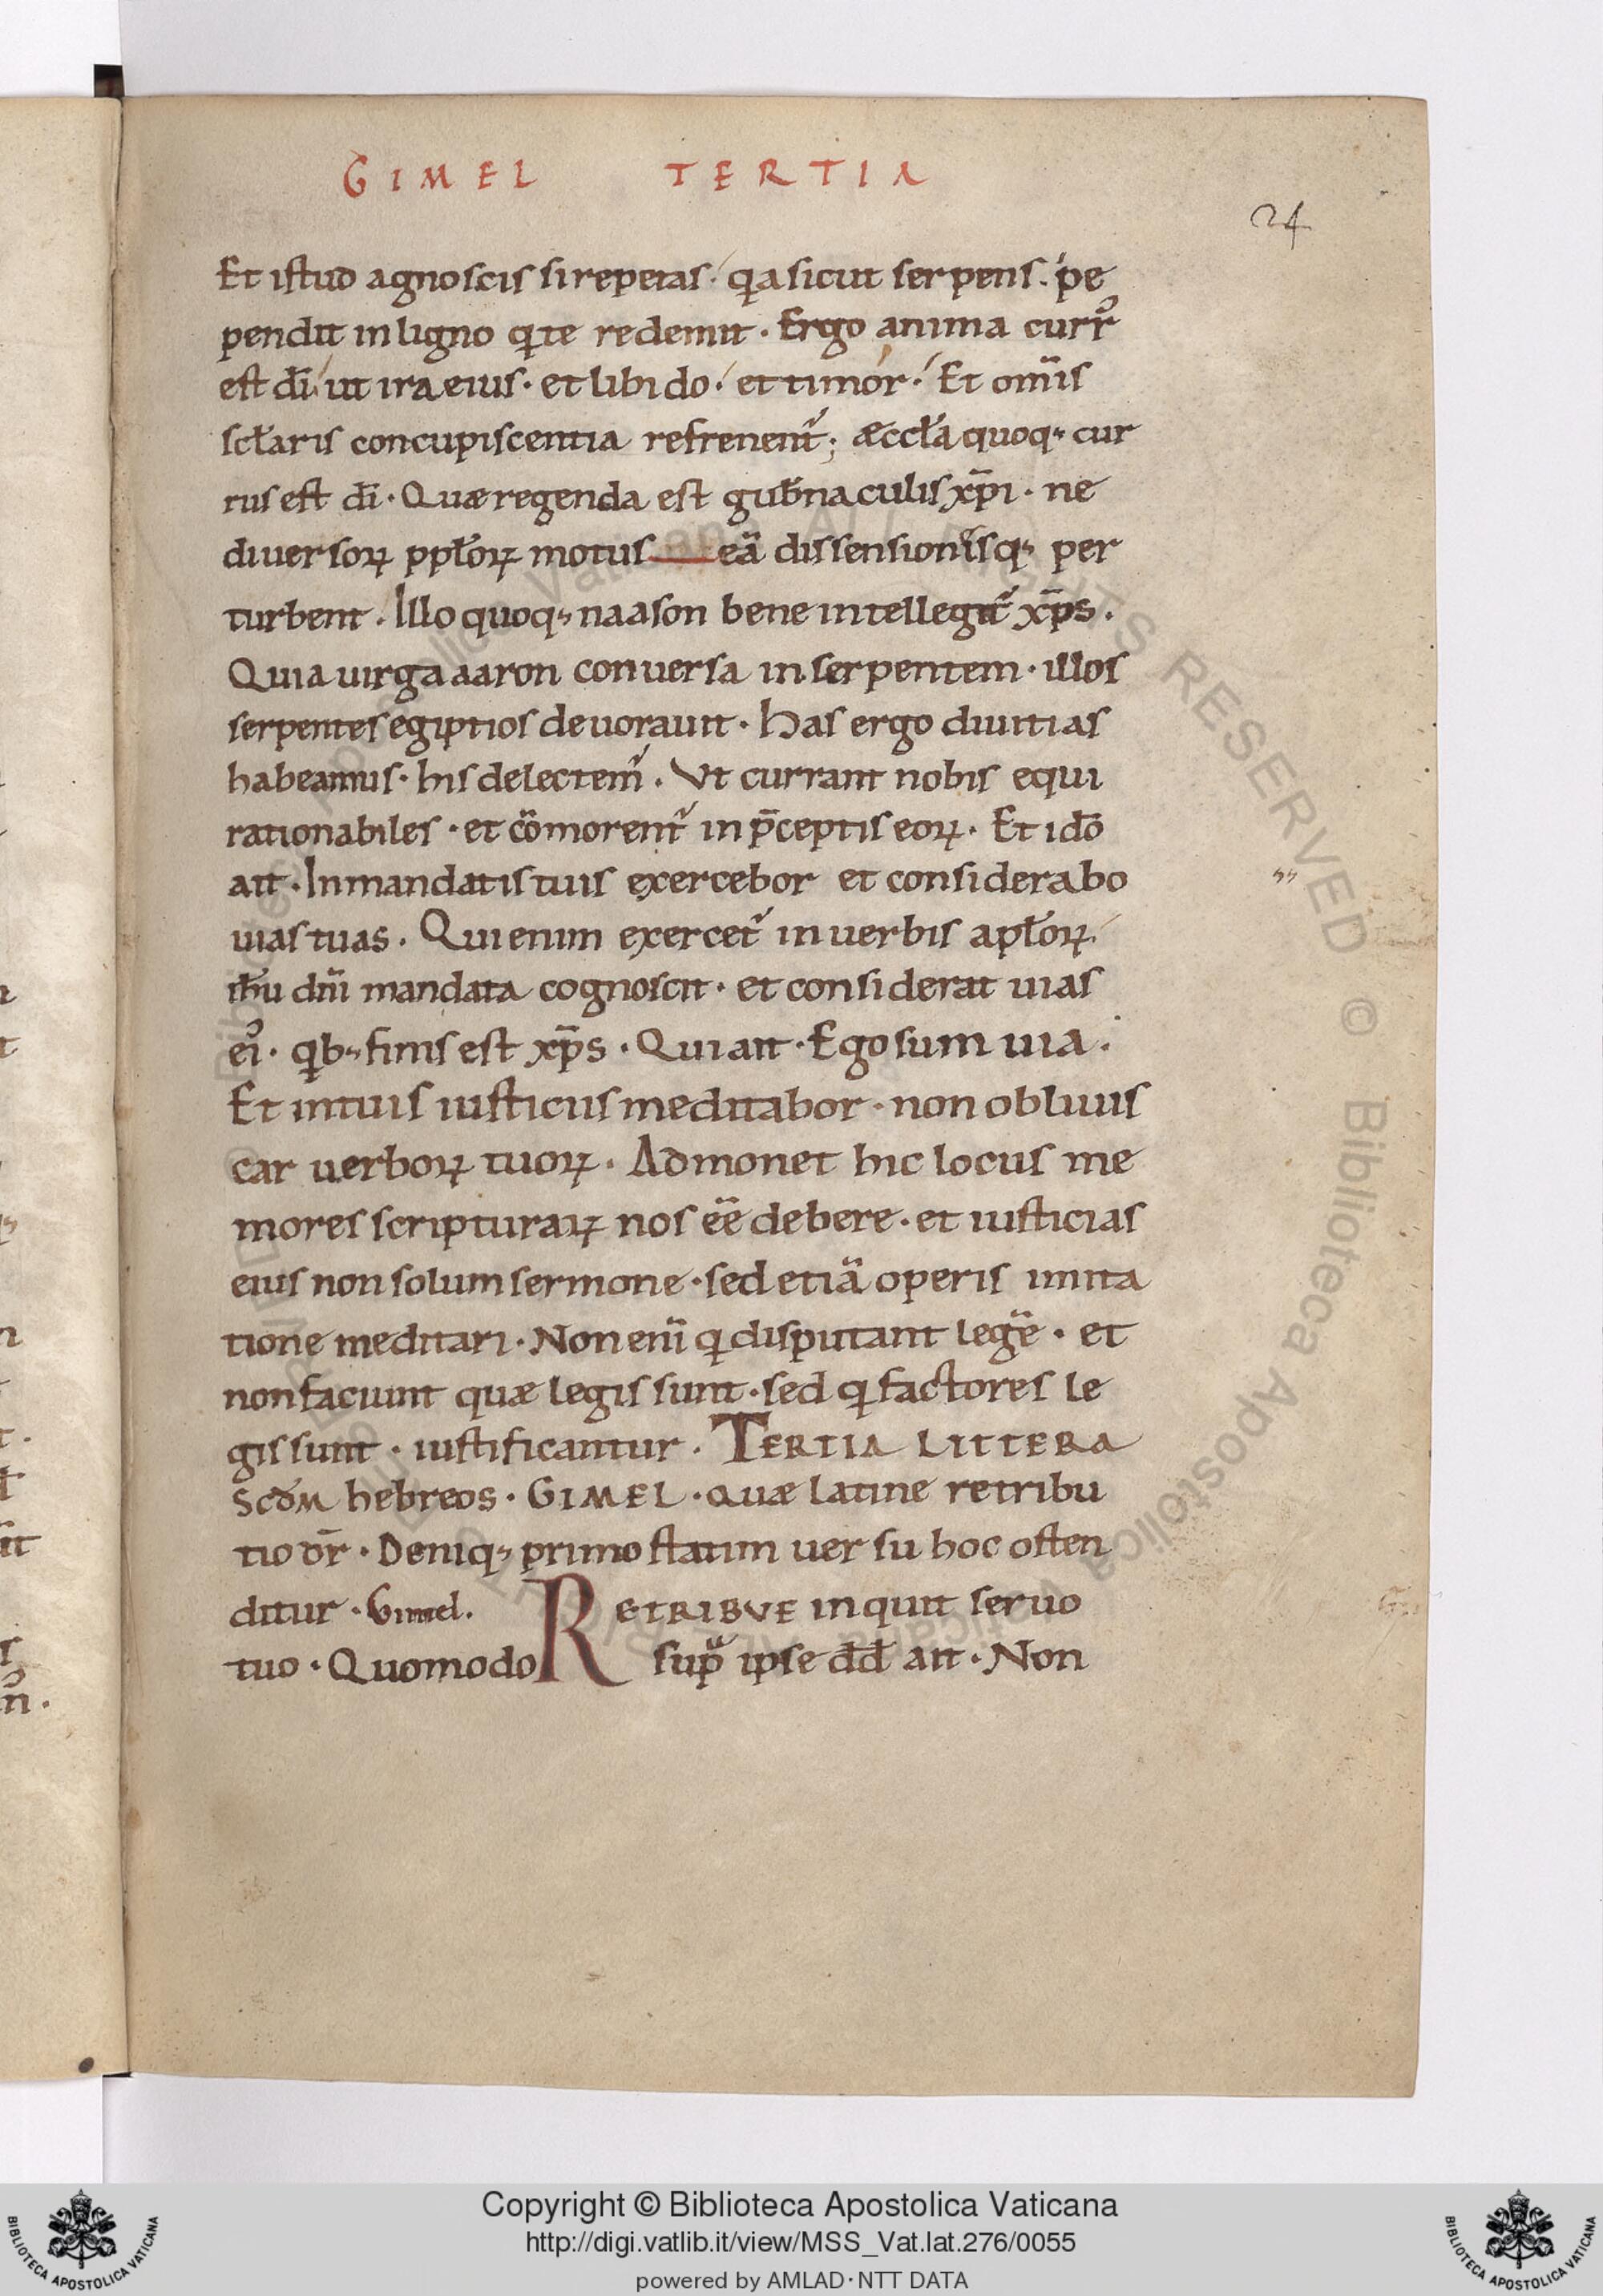 GIMEL TERTIA
24
Et istud agnoscis si repetas· qa sicut serpens. pe
pendit in ligno q te redemit. Ergo anima curr᾿
est dī ut ira eius· et libido· et timor· Et om̄is
scł̄aris concupiscentia refrenent᷑; æccł̄a quoq; cur
rus est dī· Quæ regenda est gub̄naculis xp̄i· ne
diuersoꝝ ppł̄oꝝ motus eā dissensionisq; per
turbent. Illo quoq; naason bene intellegit᷑ xp̄s.
Quia uirga aaron conuersa in serpentem· illos
serpentes egiptios deuorauit. Has ergo diuitias
habeamus· his delectem᷑. Vt currant nobis equi
rationabiles· et cōmorent᷑ in p̄ceptis eoꝝ. Et idō
ait. In mandatis tuis exercebor et considerabo
uias tuas. Qui enim exercet᷑ in uerbis apł̄oꝝ
ih̄u dn̄i mandata cognoscit· et considerat uias
ei᾿· qb; finis est xp̄s. Qui ait. Ego sum uia.
Et in tuis iusticiis meditabor· non obliuis
car uerboꝝ tuoꝝ. Admonet hic locus me
mores scripturaꝝ nos ēē debere· et iusticias
eius non solum sermone· sed etiā operis imita
tione meditari. Non enī q disputant legē· et
non faciunt quæ legis sunt· sed q factores le
gis sunt· iustificantur. TERTIA LITTERA
Scd̄m hebreos· GIMEL· quæ latine retribu
tio dr̄. Deniq; primo statim uersu hoc osten
ditur. Gimel. RETRIBVE inquit seruo
tuo. Quomodo sup᷑ ipse dd̄ ait. Non
Copyright © Biblioteca Apostolica Vaticana
http://digi.vatlib.it/view/MSS_Vat.lat.276/0055
powered by AMLAD·NTT DATA
BIBLIOTECA APOSTOLICA VATICANA
BIBLIOTECA APOSTOLICA VATICANA